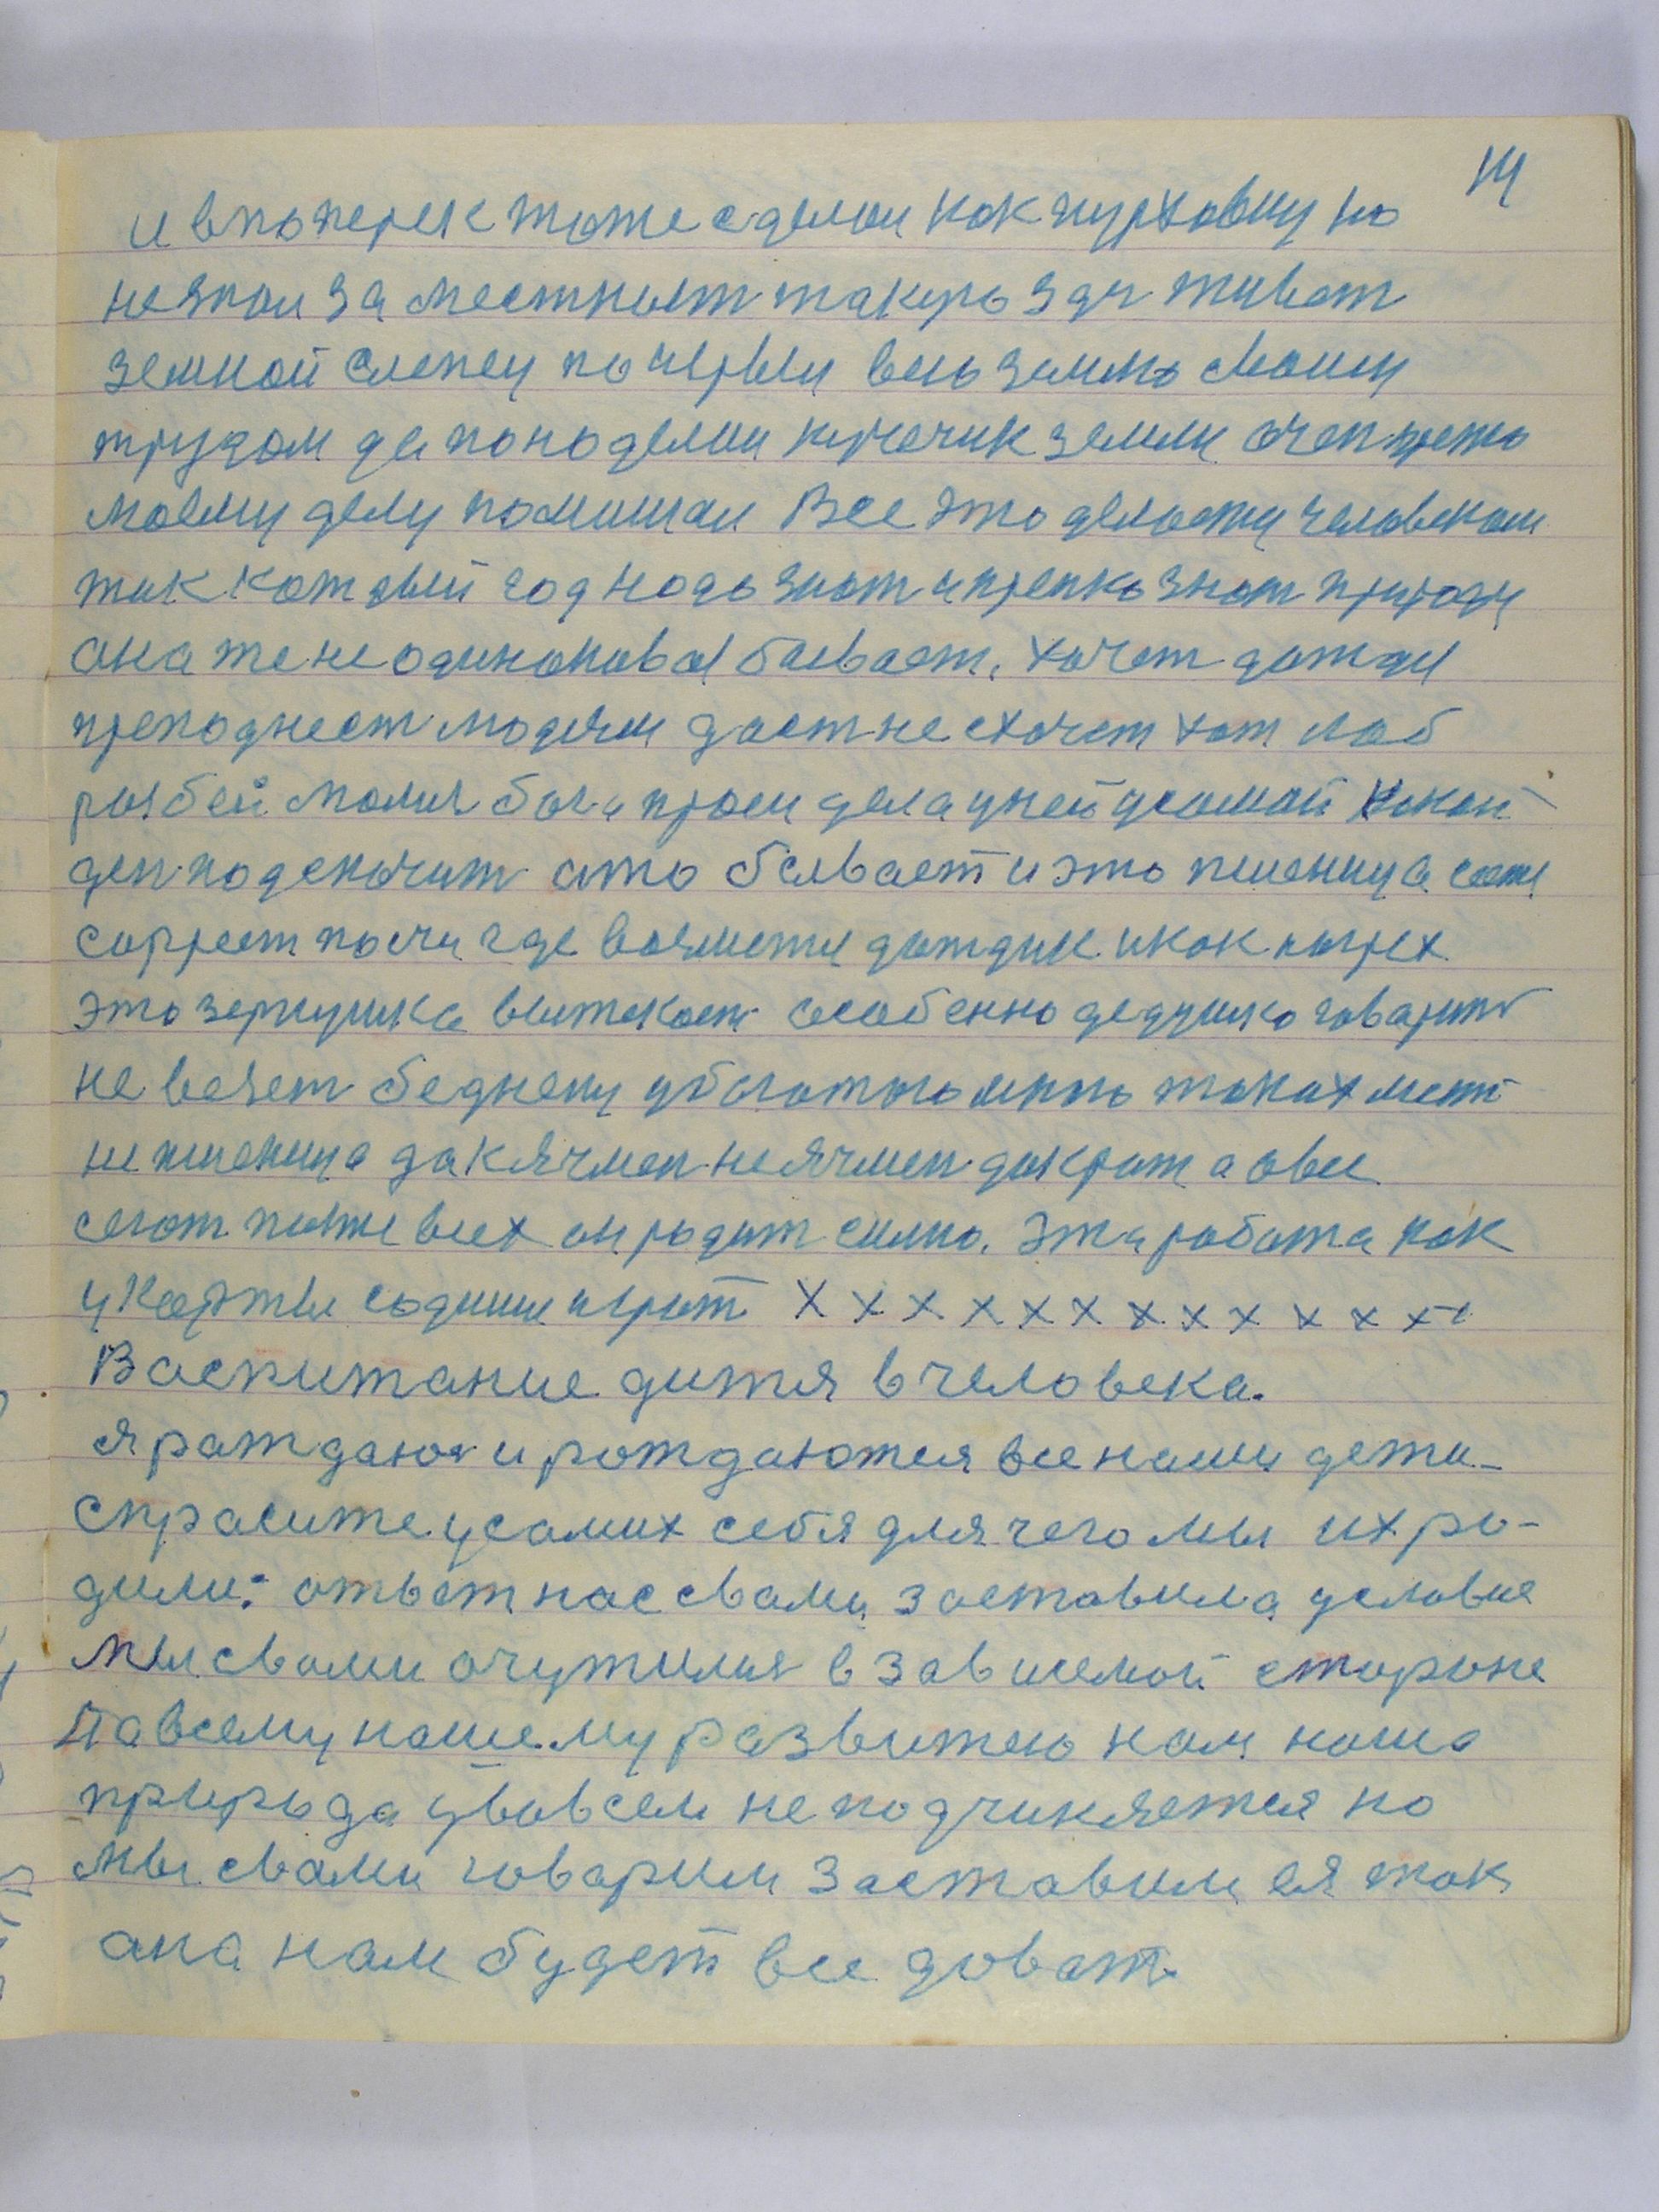 14
и впоперек тоже сделал как пухавину но
не знал за местност такую здт живет
земной слепец по чернил всю землю своим
трудом да понаделил кучечик земли очен прежо
моему делу помишал Все это делаетц человеком
так каждый год надо знат и препка знат природу
ана же не одинакавая бывает. хочет дождя
преподнест людям даст не схочет хот лоб
разбей молис богу проси дела у ней у самой какой
ден подскочит ато бывает и это пшеница сеяц
сохрест почи где возметц дождик и как
это зернушка вытекает особенно дедушка говарит
не везет беднену убогатого мнго таких мест
не пшеница дак ячмен не ячмен дак рит а овес
сеют позже всех он родит силно. Эта работа как
у картыл содним играт х х х х х х х х х х х х х
Васпитание дитя в человека.
я раждаюс и рождаются все наши дети_
спрасите у самих себя для чего мы их ро-
дили: ответ нас свами заставила условия
мы свами очутилис в зависемой стороне
Павсему нашему развитию нам наша
природа увовсем не подчиняется но
мы свами говарим заставим ея так
ана нам будет все доват